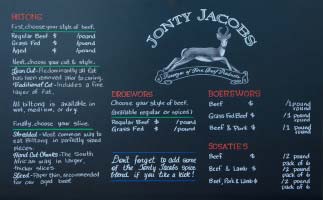 BILTONG
First, choose your style of beef.
Regular Beef $ /pound
Grass Fed $ /pound
Aged $ /pound
Next, choose your cut & style.
Lean Cut - Predominantly all fat
has been removed prior to drying.
Traditional Cut - Includes a fine
layer of fat.
All biltong is available in
wet, medium, or dry
Finally, choose your slice.
Shredded - Most common way to
eat Biltong in perfectly sized
pieces.
Hand Cut Chunks - The South
African way in larger,
thicker slices
Sliced - Paper thin, recommended
for our aged beef
JONTY JACOBS
DROEWORS
Choose your style of beef.
(available regular or spiced)
Regular Beef $ /pound
Grass Fed $ /pound
Don't forget to add some
of the Jonty Jacobs spice
blend if you like a kick!
BOEREWORS
Beef $ /pound
/pound
Grass Fed Beef $ /pound
/pound
Beef & Pork $ /pound
SOSATIES
Beef $ /2 pound
pack of 6
Beef & Lamb $ /2 pound
pack of 6
Beef, Pork & Lamb $ /2 pound
pack of 6